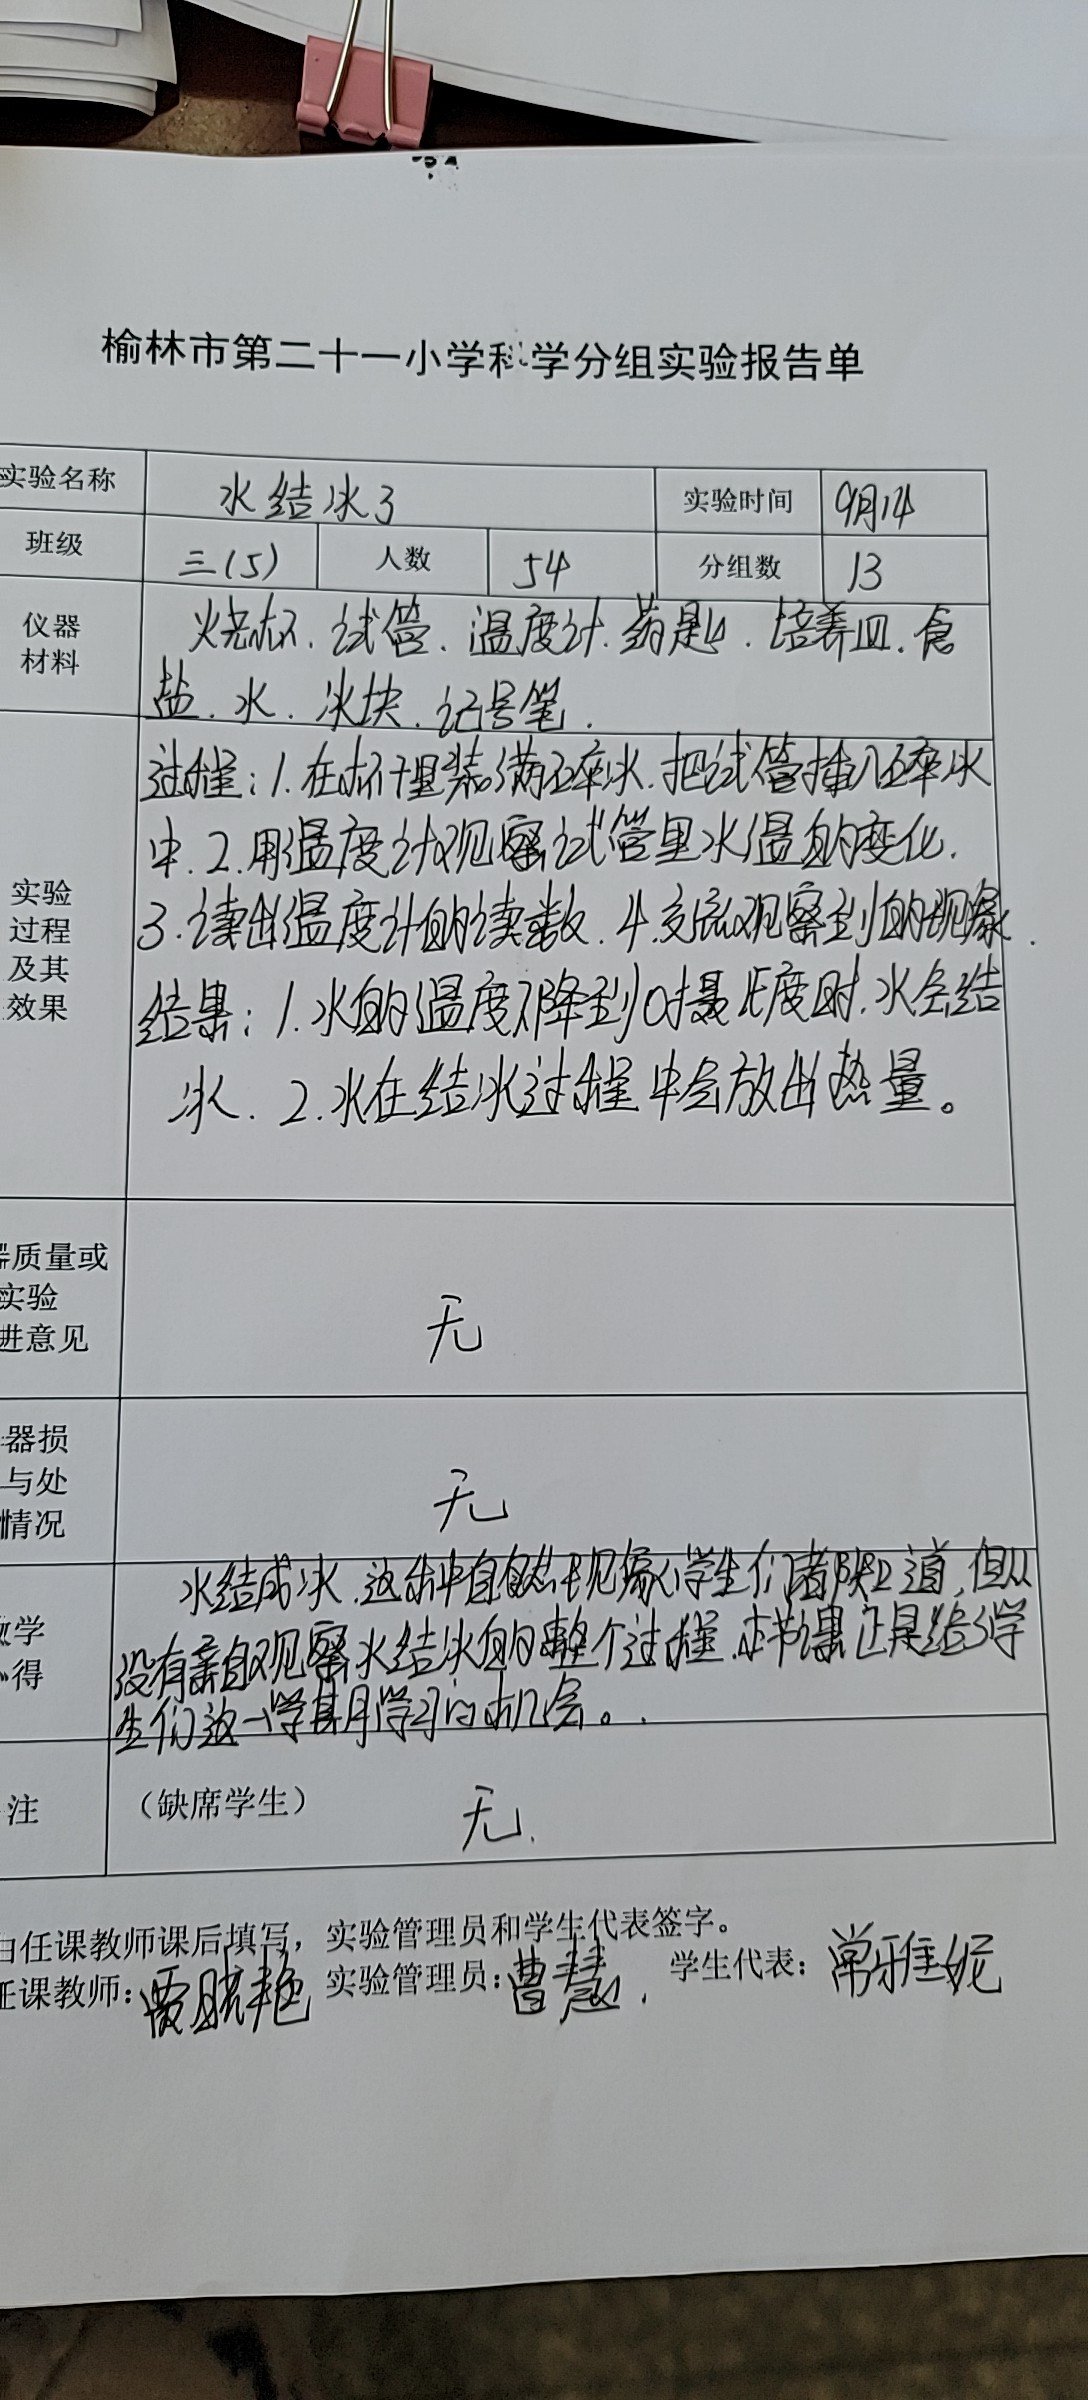 榆林市第二十一小学科学分组实验报告单
实验名称 水结冰了 实验时间 9月14
班级 三(5) 人数 54 分组数 13
仪器 烧杯、试管、温度计、药匙、培养皿、食
材料 盐、水、冰块、记号笔.
过程:1.在杯子里装满碎冰.把试管插入碎冰
中.2.用温度计观察试管里水温的变化.
实验
过程
及其
效果
3.读出温度计的读数.4.交流观察到的现象.
结果:1.水的温度下降到0摄氏度时.水会结
冰.2.水在结冰过程中会放出热量。
器质量或
实验
进意见
无
器损
与处
情况
无
水结成冰.这种自然现象学生们都知道,但从
教学
心得
没有亲自观察水结冰的整个过程.本节课正是给了学
生们这一学习的机会。
注 (缺席学生) 无.
由任课教师课后填写,实验管理员和学生代表签字。
任课教师:贾晓艳 实验管理员:曹慧. 学生代表:常雅妮